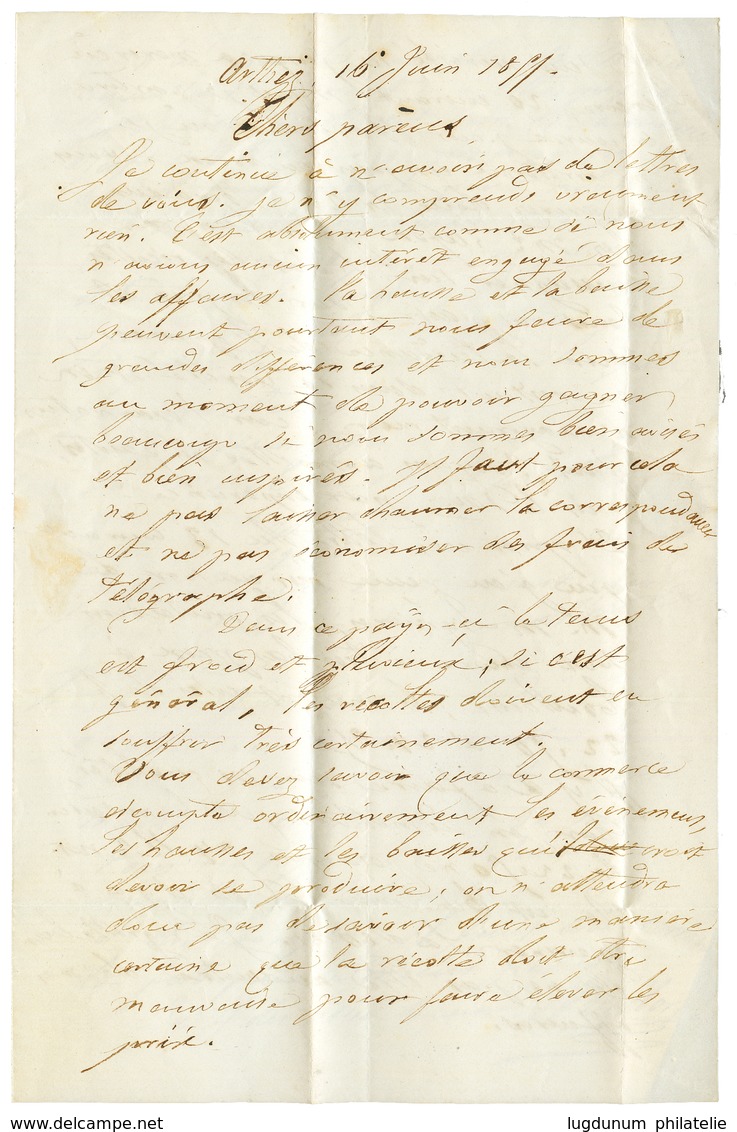 Arthez, 16 Juin 1857.
Chers parens
Je continue à n'avoir pas de lettres
de vous. Je n'y comprends vraiment
rien. C'est absolument comme si nous
n'avions aucun intérêt engagé dans
les affaires. la hausse et la baisse
peuvent pourtant nous faire de
grandes différences et nous sommes
au moment de pouvoir gagner
beaucoup si nous sommes bien avisés
et bien inspirés. Il faut pour cela
ne pas laisser chaumer la correspondance
et ne pas économiser des frais de
télégraphe.
Dans ce pays-ci le tems
est froid et pluvieux; si c'est
général, les récoltes doivent en
souffrir très certainement.
Vous devez savoir que le commerce
escompte ordinairement les événemens,
les hausses et les baisses qu'il croit
devoir se produire; on n'attendra
donc pas de savoir d'une manière
certaine que la récolte doit être
mauvaise pour faire élever les
prix.
lugdunum philatelie